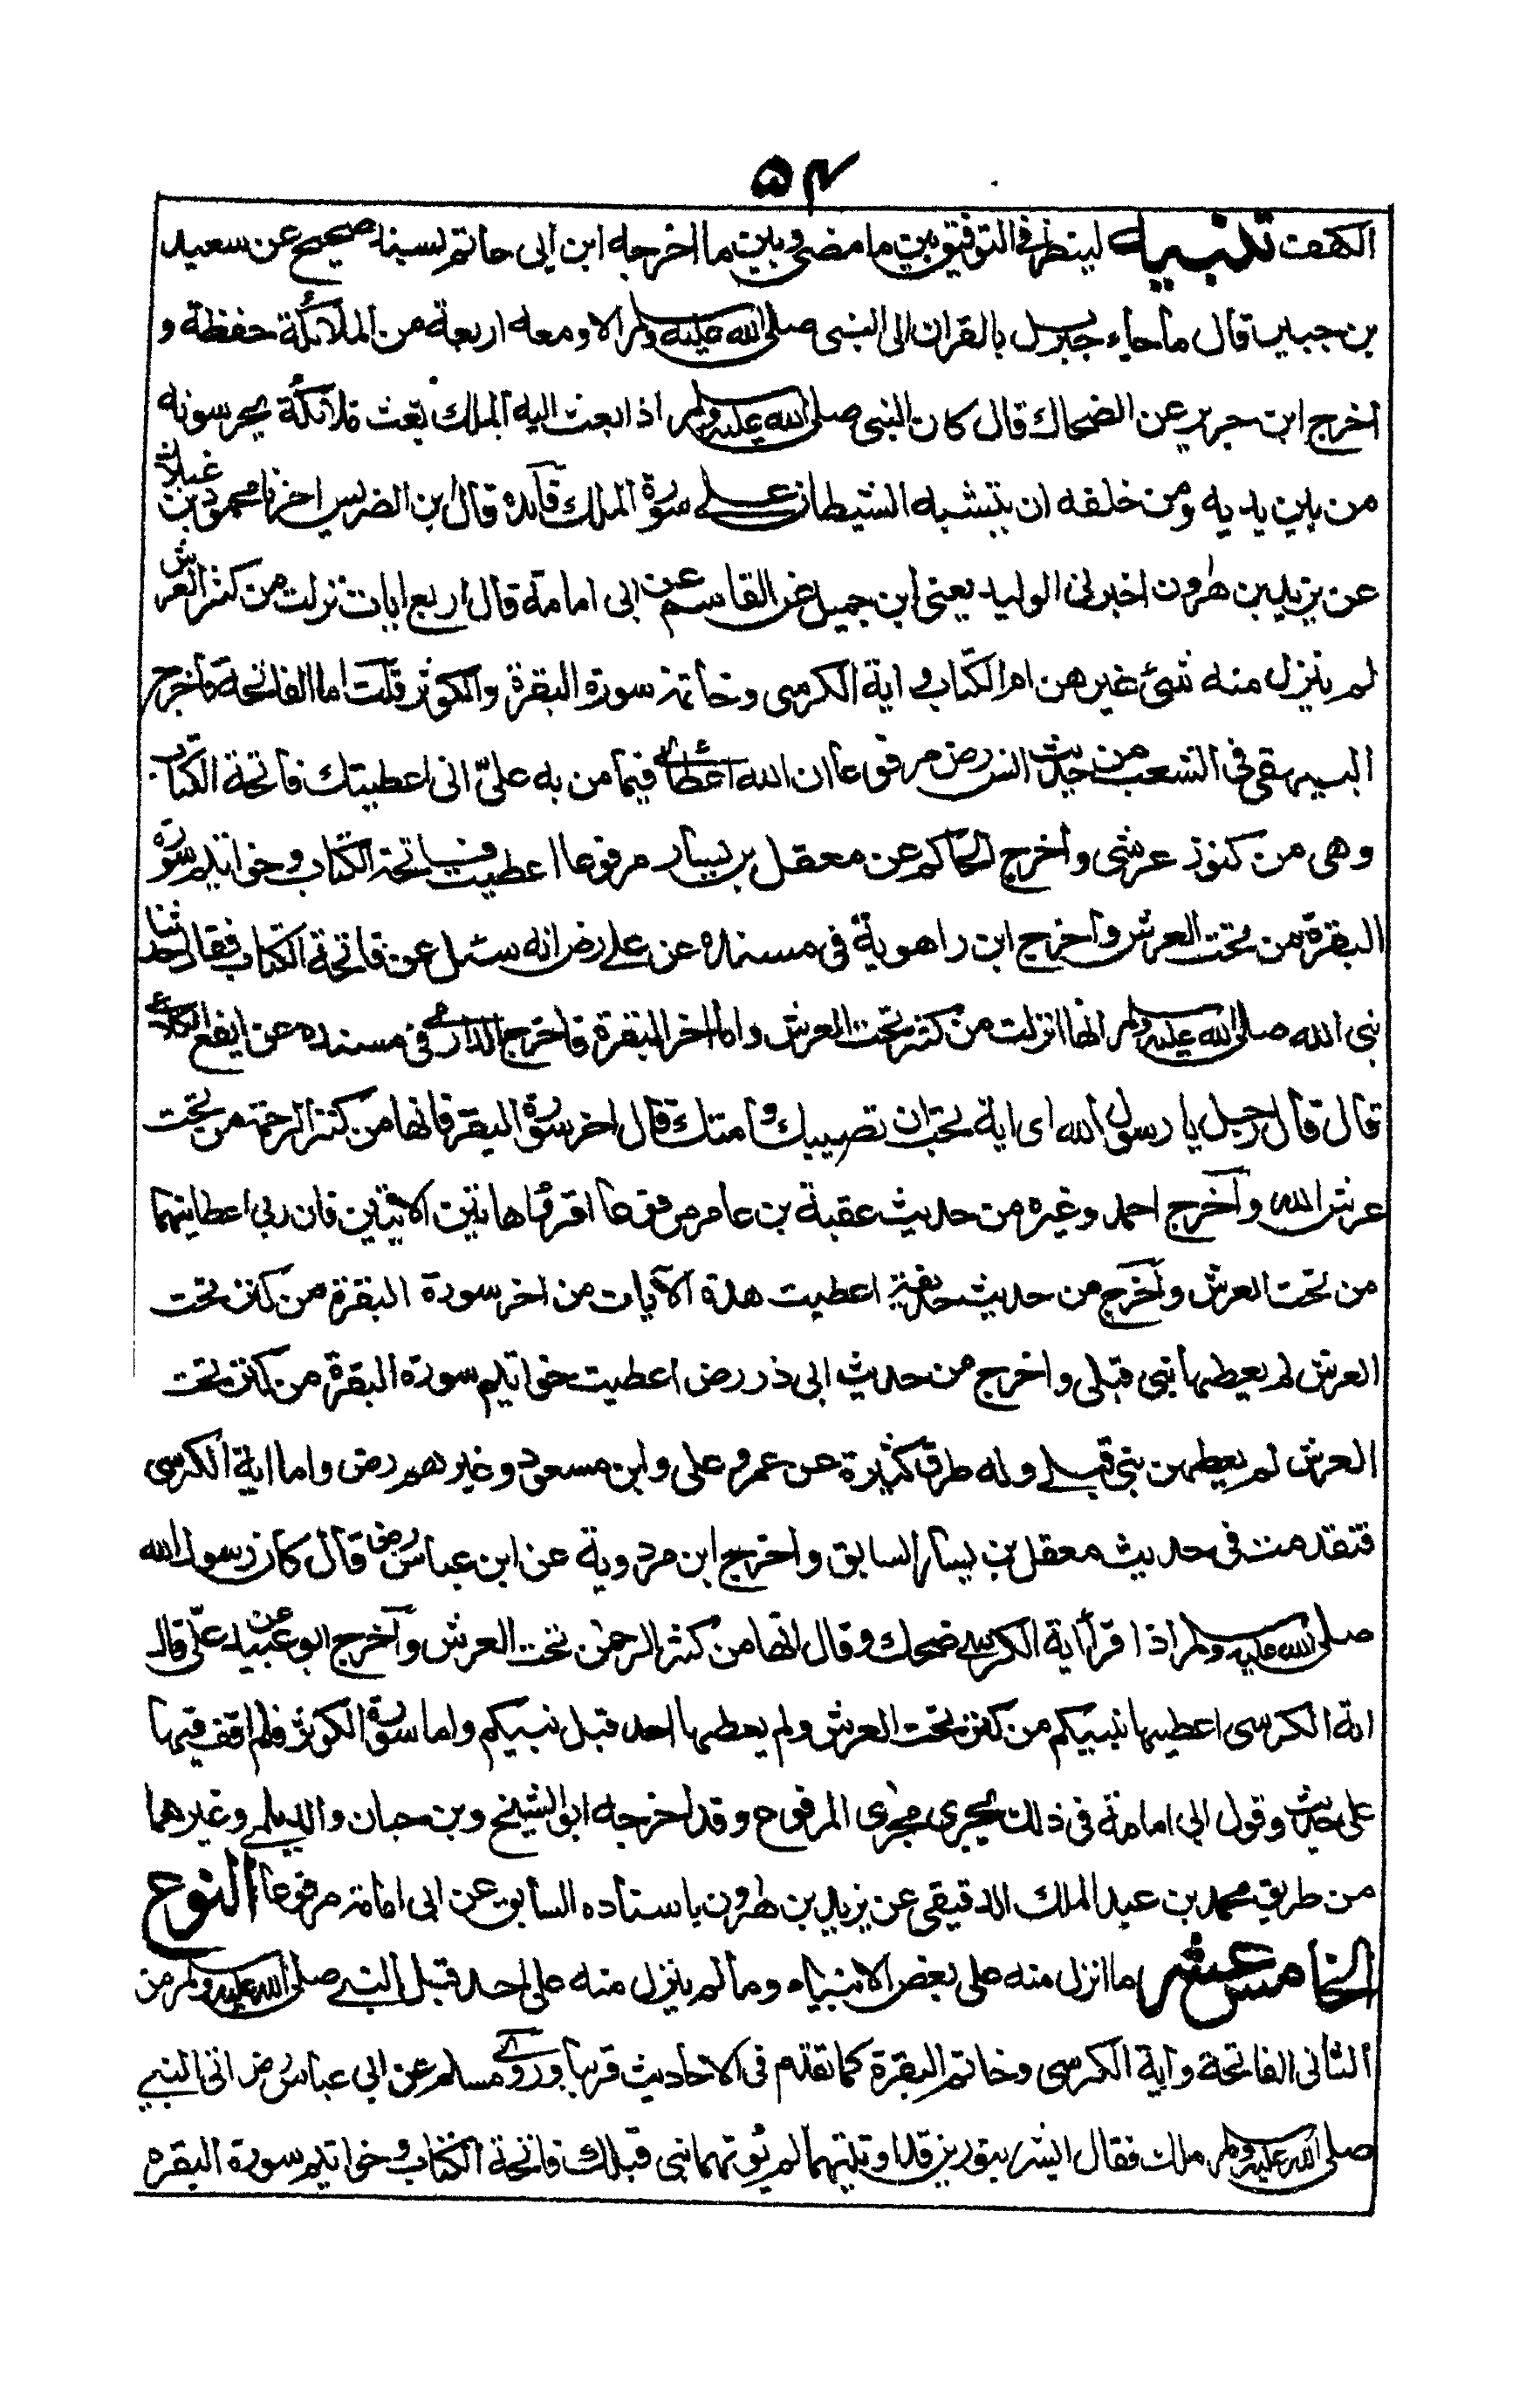 ۵۴
الكهف تنبيه لينظر فى التوفيق بين ما مضى وبين ما اخرجه ابن ابى حاتم بسند صحيح عن سعيد
بن جبير قال ما جاء جبريل بالقران الى النبى صلى الله عليه وسلم الا ومعه اربعة من الملائكة حفظة و
اخرج ابن جرير عن الضحاك قال كان النبى صلى الله عليه وسلم اذا بعث اليه الملك بعث ملائكة يحرسونه
من بين يديه ومن خلفه ان يتشبه الشيطان على صورة الملك فائده قال ابن الضريس اخبرنا محمود بن غيلان
عن يزيد بن هارون اخبرنى الوليد يعنى ابن جميل عن القاسم عن ابى امامة قال اربع ايات نزلت من كنز العرش
لم ينزل منه شئ غيرهن ام الكتاب و اية الكرسى وخاتمة سورة البقرة والكوثر قلت اما الفاتحة فاخرج
البيهقى فى الشعب من حديث انس رض مرفوعا ان الله اعطانى فيما من به علىّ انى اعطيتك فاتحة الكتاب
وهى من كنوز عرشى واخرج الحاكم عن معقل بن يسار مرفوعا اعطيت فاتحة الكتاب وخواتيم سورة
البقرة من تحت العرش واخرج ابن راهوية فى مسنده عن على رض انه سئل عن فاتحة الكتاب فقال حدثنا
نبى الله صلى الله عليه وسلم انها انزلت من كنز تحت العرش واما اخر البقرة فاخرج الدارمى فى مسنده عن ايفع الكلاعى
قال قال رجل يا رسول الله اى اية تحب ان تصيبك وامتك قال اخر سورة البقر فانها من كنز الرحمة من تحت
عرش الله واخرج احمد وغيره من حديث عقبة بن عامر مرفوعا اقرؤا هاتين الايتين فان ربى اعطانيهما
من تحت العرش واخرج من حديث حذيفة اعطيت هذه الآيات من اخر سورة البقرة من كنز تحت
العرش لم يعطها نبى قبلى واخرج من حديث ابى ذر رض اعطيت خواتيم سورة البقرة من كنز تحت
العرش لم يعطهن نبى قبلى وله طرق كثيرة عن عمر و على وابن مسعود وغيرهم رض واما اية الكرسى
فتقدمت فى حديث معقل بن يسار السابق واخرج ابن مردوية عن ابن عباس رض قال كان رسول الله
صلى الله عليه وسلم اذا قرأ اية الكرسى ضحك وقال انها من كنز الرحمن تحت العرش واخرج ابو عبيد عن علّى قال
اية الكرسى اعطيها نبيكم من كنز تحت العرش ولم يعطها احد قبل نبيكم واما سورة الكوثر فلم اقف فيها
على حديث وقول ابى امامة فى ذلك يجرى مجرى المرفوع وقد اخرجه ابو الشيخ وبن حبان والديلمى وغيرهما
من طريق محمد بن عبد الملك الدقيقى عن يزيد بن هارون باسناده السابق عن ابى امامة مرفوعا النوع
الخامس عشر ما انزل منه على بعض الانبياء وما لم ينزل منه على احد قبل النبى صلى الله عليه وسلم من
الثانى الفاتحة واية الكرسى وخاتم البقرة كما تقدم فى الاحاديث قريبا وروى مسلم عن ابى عباس رض اتى النبى
صلى الله عليه وسلم ملك فقال ابشر بنورين قد اوتيتهما لم يؤتهما نبى قبلك فاتحة الكتاب وخواتيم سورة البقره